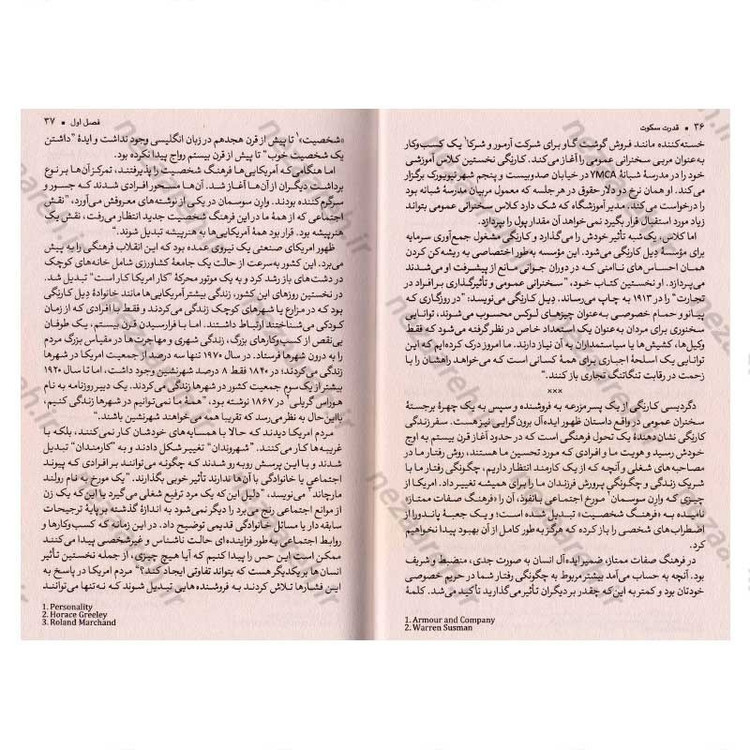 ۳۶ • قدرت سکوت
خسته‌کننده مانند فروش گوشت گاو برای شرکت آرمور و شرکا۱ یک کسب‌وکار
به‌عنوان مربی سخنرانی عمومی را آغاز می‌کند. کارنگی نخستین کلاس آموزشی
خود را در مدرسهٔ شبانهٔ YMCA در خیابان صدوبیست و پنجم شهر نیویورک برگزار
می‌کند. او همان نرخ دو دلار حقوق در هر جلسه که معمول مربیان مدرسهٔ شبانه بود
را درخواست می‌کند، مدیر آموزشگاه که شک دارد کلاس سخنرانی عمومی بتواند
زیاد مورد استقبال قرار بگیرد نمی‌خواهد آن مقدار پول را بپردازد.
اما کلاس، یک‌شبه تأثیر خودش را می‌گذارد و کارنگی مشغول جمع‌آوری سرمایه
برای مؤسسهٔ دِیل کارنگی می‌شود. این مؤسسه به‌طور اختصاصی به ریشه‌کن کردن
همان احساس های ناامنی که در دوران جوانی مانع از پیشرفت او می‌شدند
می‌پردازد. او نخستین کتاب خود، "سخنرانی عمومی و تأثیرگذاری بر افراد در
تجارت" را در ۱۹۱۳ به چاپ می‌رساند. دِیل کارنگی می‌نویسد: "در روزگاری که
پیانو و حمام خصوصی به‌عنوان چیزهای لوکس محسوب می‌شوند، توانایی
سخنوری برای مردان به‌عنوان یک استعداد خاص در نظر گرفته می‌شود که فقط
وکیل‌ها، کشیش‌ها یا سیاستمداران به آن نیاز دارند. ما امروز درک کرده‌ایم که این
توانایی یک اسلحهٔ اجباری برای همهٔ کسانی است که می‌خواهد راهشان را با
زحمت در رقابت تنگاتنگ تجاری باز کنند."
×××
دگردیسی کارنگی از یک پسر مزرعه به فروشنده و سپس به یک چهرهٔ برجستهٔ
سخنران عمومی در واقع داستان ظهور ایده‌آل برون‌گرایی نیز هست. سفر زندگی
کارنگی نشان‌دهندهٔ یک تحول فرهنگی است که در حدود آغاز قرن بیستم به اوج
خودش رسید و هویت ما و افرادی که مورد تحسین ما هستند، روش رفتار ما در
مصاحبه های شغلی و آنچه که از یک کارمند انتظار داریم، چگونگی رفتار ما با
شریک زندگی و چگونگی پرورش فرزندان ما را برای همیشه تغییر داد. امریکا از
چیزی که وارن سوسمان۲ مورخ اجتماعی بانفوذ، آن را «فرهنگ صفات ممتاز»
نامیده به «فرهنگ شخصیت» تبدیل شده است؛ و یک جعبهٔ پاندورا از
اضطراب‌های شخصی را باز کرده که هرگز به‌طور کامل از آن بهبود پیدا نخواهیم
کرد.
در فرهنگ صفات ممتاز، ضمیر ایده‌آل انسان به صورت جدی، منضبط و شریف
بود. آنچه به حساب می‌آمد بیشتر مربوط به چگونگی رفتار شما در حریم خصوصی
خودتان بود و کمتر به این‌که چقدر بر دیگران تأثیر می‌گذارید تأکید می‌شد. کلمهٔ
1. Armour and Company
2. Warren Susman
فصل اول • ۳۷
«شخصیت»۱ تا پیش از قرن هجدهم در زبان انگلیسی وجود نداشت و ایدهٔ "داشتن
یک شخصیت خوب" تا پیش از قرن بیستم رواج پیدا نکرده بود.
اما هنگامی که آمریکایی‌ها فرهنگ شخصیت را پذیرفتند، تمرکز آن‌ها بر نوع
برداشت دیگران از آن‌ها آغاز شد. آن‌ها مسحور افرادی شدند که جسور و
سرگرم‌کننده بودند. وارن سوسمان در یکی از نوشته‌های معروفش می‌آورد، "نقش
اجتماعی که از همهٔ ما در این فرهنگ شخصیت جدید انتظار می‌رفت، نقش یک
هنرپیشه بود. قرار بود همهٔ آمریکایی‌ها به هنرپیشه تبدیل شوند."
ظهور امریکای صنعتی یک نیروی عمده بود که این انقلاب فرهنگی را به پیش
می‌برد. این کشور به‌سرعت از حالت یک جامعهٔ کشاورزی شامل خانه‌های کوچک
در دشت‌های باز رشد کرد و به یک موتور محرکهٔ "کار امریکا کار است" تبدیل شد.
در نخستین روزهای این کشور، زندگی بیشتر آمریکایی‌ها مانند خانوادهٔ دِیل کارنگی
بود که در مزارع یا شهرهای کوچک زندگی می‌کردند و فقط با افرادی که از زمان
کودکی می‌شناختند ارتباط داشتند. اما با فرارسیدن قرن بیستم، یک طوفان
بی‌نقص از کسب‌وکارهای بزرگ، زندگی شهری و مهاجرت‌ها در مقیاس بزرگ مردم
را به درون شهرها فرستاد. در سال ۱۹۷۰ تنها سه درصد از جمعیت امریکا در شهرها
زندگی می‌کردند؛ در ۱۸۴۰ فقط ۸ درصد شهرنشین وجود داشت، اما تا سال ۱۹۲۰
بیشتر از یک سوم جمعیت کشور در شهرها زندگی می‌کردند. یک دبیر روزنامه به نام
هوراس گریلی۲ در ۱۸۶۷ نوشته بود، "همهٔ ما نمی‌توانیم در شهرها زندگی کنیم،
بااین‌حال به نظر می‌رسد که تقریبا همه می‌خواهند شهرنشین باشند."
مردم امریکا دیدند که حالا با همسایه های خودشان کار نمی‌کنند، بلکه با
غریبه‌ها کار می‌کنند. "شهروندان" تغییر شکل دادند و به "کارمندان" تبدیل
شدند و با این پرسش روبه‌رو شدند که چگونه می‌توانند بر افرادی که پیوند
اجتماعی یا خانوادگی با آن‌ها ندارند تأثیر خوبی بگذارند. "یک مورخ به نام رولند
مارچاند۳ می‌نویسد، "دلیل این‌که یک مرد ترفیع شغلی می‌گیرد یا این‌که یک زن
از موانع اجتماعی رنج می‌برد را دیگر نمی‌شود به اندازهٔ گذشته بر پایهٔ ترجیحات
سابقه‌دار یا مسائل خانوادگی قدیمی توضیح داد. در این زمانه که کسب‌وکارها و
روابط اجتماعی به‌طور فزاینده ای حالت ناشناس و غیرشخصی پیدا می‌کنند
ممکن است این حس را پیدا کنیم که آیا هیچ چیزی، از جمله نخستین تأثیر
انسان‌ها بر یکدیگر هست که بتواند تفاوتی ایجاد کند؟" مردم امریکا در پاسخ به
این فشارها تلاش کردند به فروشنده هایی تبدیل شوند که نه‌تنها می‌توانند
1. Personality
2. Horace Greeley
3. Roland Marchand
nezareh.ir